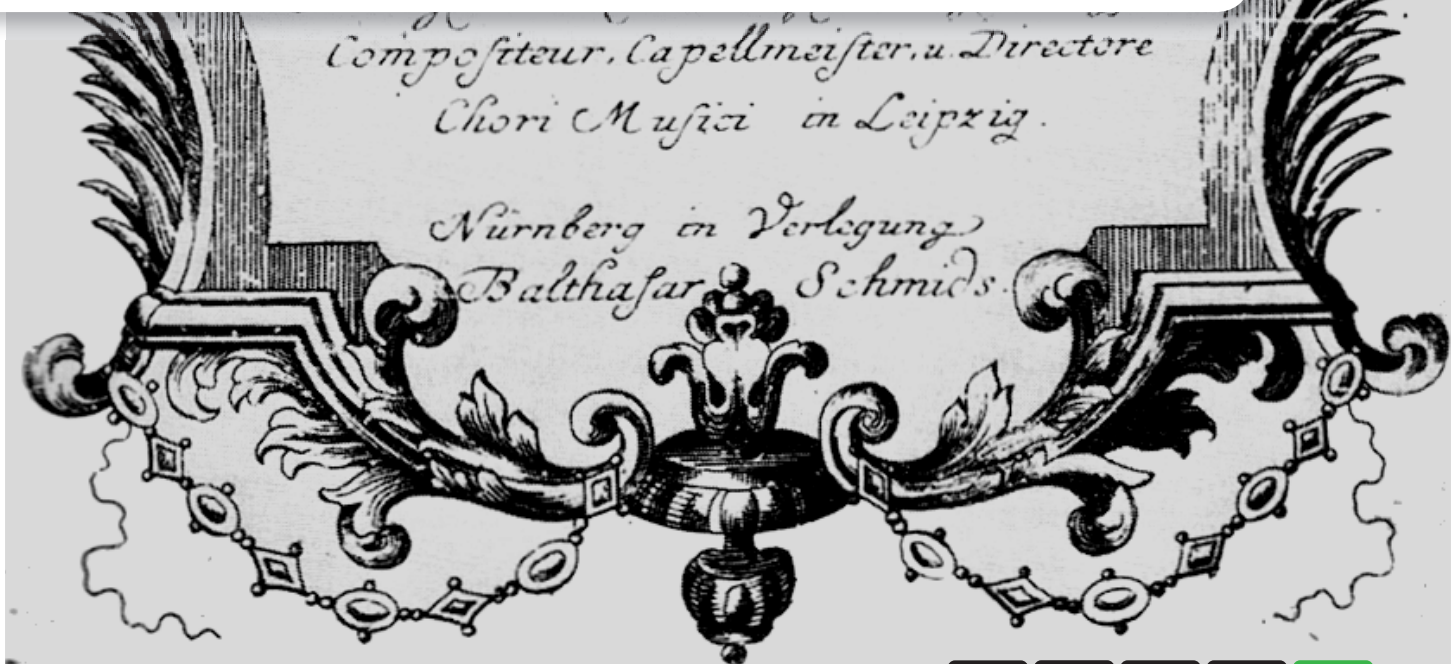 Compositeur, Capellmeiſter, u. Directore
Chori Muſici in Leipzig.
Nürnberg in Verlegung
Balthaſar Schmids.